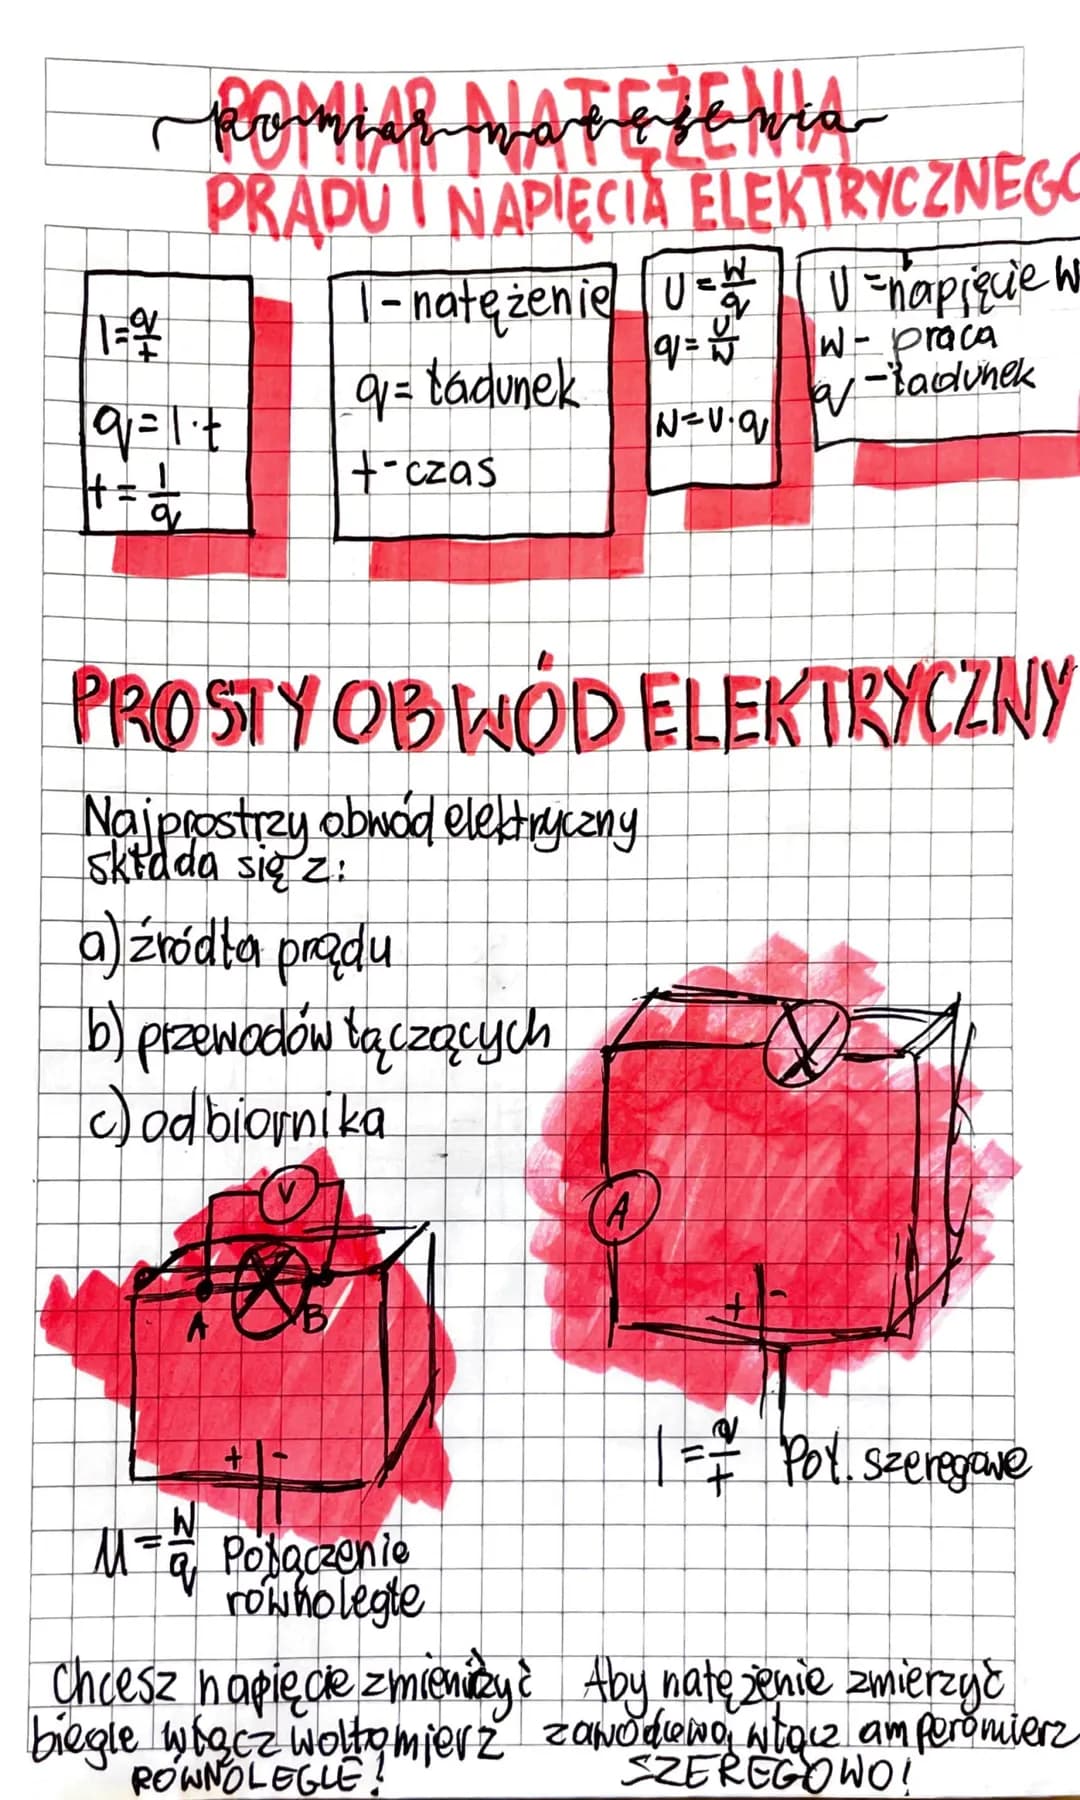 POMIAR NATĘŻENIA
pomiar natężenia
PRĄDU I NAPIĘCIA ELEKTRYCZNEGO
I=q/t
q=I·t
t=I/q
I-natężenie
q=ładunek
t-czas
U=W/q
q=U/W
W=U·q
U=napięcie W
W-praca
q-ładunek
PROSTY OBWÓD ELEKTRYCZNY
Najprostrzy obwód elektryczny
składa się z:
a) źródła prądu
b) przewodów łączących
c) odbiornika
V
A
B
+ -
U=W/q Połączenie
równoległe
A
+ -
I=q/t Poł. szeregowe
Chcesz napięcie zmierzyć
biegle włącz woltomierz
RÓWNOLEGLE!
Aby natężenie zmierzyć
zawodowo, włącz amperomierz
SZEREGOWO!